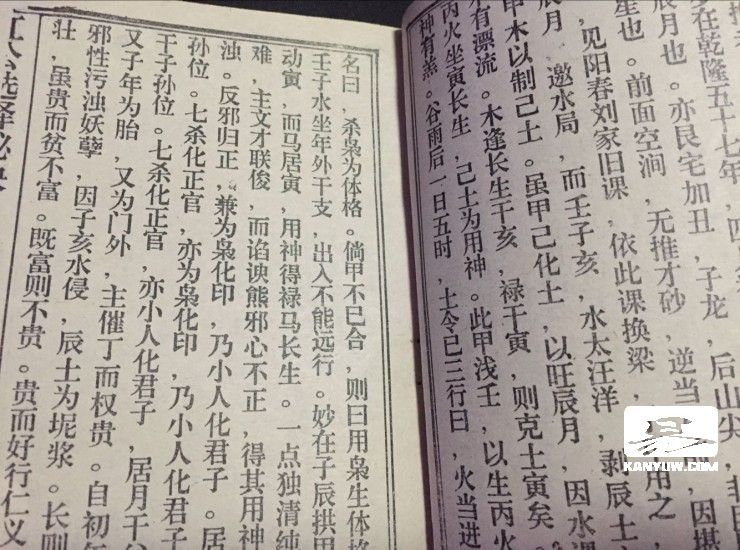 多在乾隆五十七年，
辰月也。亦艮宅加丑，子龙，后山尖，
星也。前面空涧，无推才砂，逆当
见阳春刘家旧课，依此课换梁，
辰月，邀水局，而壬子亥，水太汪洋，剥辰土
甲木以制己土。虽甲己化土，以旺辰月，因水
水有漂流。木逢长生干亥，禄干寅，则克土寅矣。
丙火坐寅长生，己土为用神。此甲浅壬，以生丙火
神有羔。谷雨后一日五时，土令已三行曰，火当进
名曰，杀枭为体格。倘甲不已合，则曰用枭生体格
壬子水坐年外干支，出入不能远行。妙在子辰拱甲
动寅，而马居寅，用神得禄马长生。一点独清纯
难，主文才联俊，而谄谀熊邪心不正，得其用神
浊。反邪归正，兼为枭化印，乃小人化君子。居
孙位。七杀化正官，亦为枭化印，乃小人化君子
干子孙位。七杀化正官，亦小人化君子，居月干父
又子年为胎，又为门外，主催丁而权贵。自初年
邪性污浊妖孽，因子亥水侵，辰土为坭浆。长则
壮，虽贵而贫不富。既富则不贵。贵而好行仁义
江公选择秘
KANYUW.COM